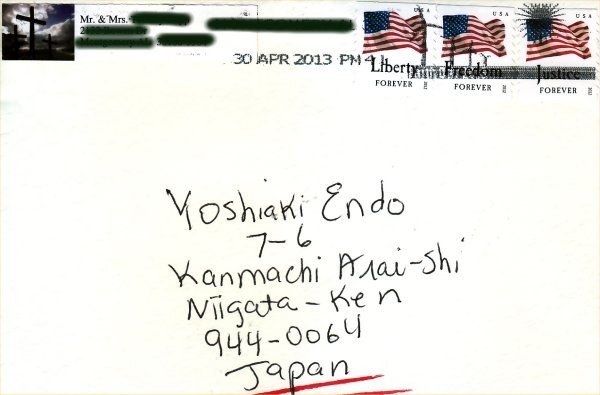 Mr. & Mrs.
30 APR 2013 PM 4
USA USA USA
Liberty Freedom Justice
FOREVER FOREVER FOREVER
Yoshiaki Endo
7-6
Kanmachi Arai-Shi
Niigata-Ken
944-0064
Japan